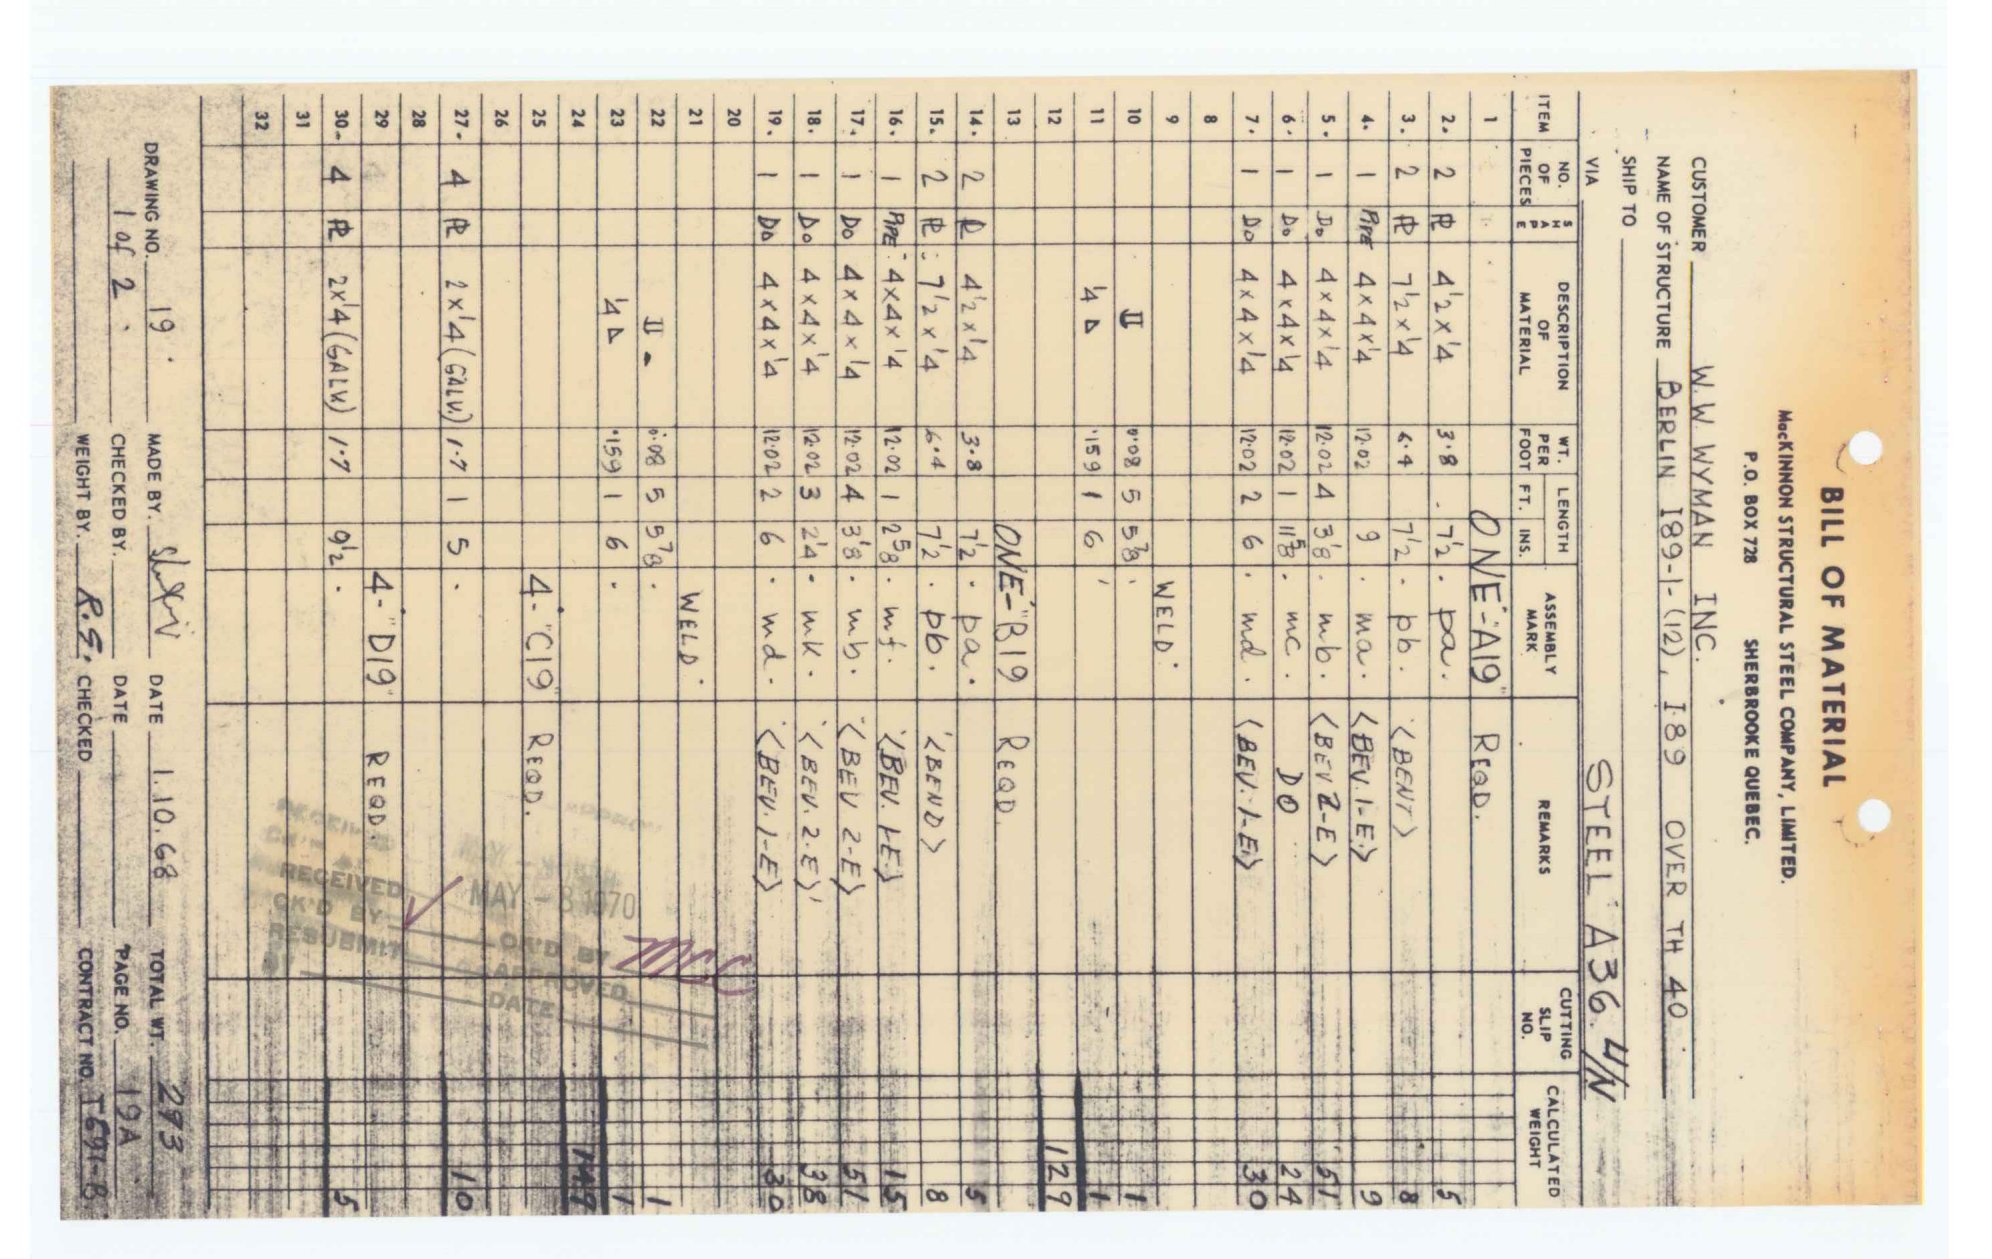 BILL OF MATERIAL
MacKINNON STRUCTURAL STEEL COMPANY, LIMITED.
P.O. BOX 728 SHERBROOKE QUEBEC.
CUSTOMER W.W. WYMAN INC.
NAME OF STRUCTURE BERLIN 189-1-(12), I.89 OVER TH 40
SHIP TO
VIA STEEL A36
ITEM NO. OF PIECES SHAPE DESCRIPTION OF MATERIAL WT. PER FOOT LENGTH FT. INS. ASSEMBLY MARK REMARKS CUTTING SLIP NO. CALCULATED WEIGHT
1 ONE-"A19" REQD.
2. 2 PL 4 1/2 x 1/4 3.8 7 1/2 . pa. 5
3. 2 PL 7 1/2 x 1/4 6.4 7 1/2 . pb. <BENT> 8
4. 1 PIPE 4x4x1/4 12.02 9 . ma. <BEV.1-E> 9
5. 1 Do 4x4x1/4 12.02 4 3 1/8 . mb. <BEV 2-E> 51
6. 1 Do 4x4x1/4 12.02 1 11 5/8 . mc. DO 24
7. 1 Do 4x4x1/4 12.02 2 6 . md. <BEV.1-E> 30
8
9 WELD.
10 II 0.08 5 5 7/8 . 1
11 1/4 △ .159 1 6 1
12 129
13 ONE-"B19 REQD.
14. 2 PL 4 1/2 x 1/4 3.8 7 1/2 . pa. 5
15. 2 PL 7 1/2 x 1/4 6.4 7 1/2 . pb. <BEND> 8
16. 1 PIPE 4x4x1/4 12.02 1 2 5/8 . mf. <BEV.1-E> 15
17. 1 Do 4x4x1/4 12.02 4 3 1/8 . mb. <BEV 2-E> 51
18. 1 Do 4x4x1/4 12.02 3 2 1/4 . mk. <BEV.2.E> 38
19. 1 Do 4x4x1/4 12.02 2 6 . md. <BEV.1-E> 30
20
21 WELD.
22 II 0.08 5 5 7/8 . 1
23 1/4 △ .159 1 6 . 1
24 149
25 4-"C19" REQD.
26
27. 4 PL 2x1/4 (GALV.) 1.7 1 5 . 10
28
29 4-"D19" REQD.
30. 4 PL 2x1/4 (GALV) 1.7 9 1/2 . 5
31
32
RECEIVED MAY - 8 1970
OK'D BY OK'D BY
RESUBMIT APPROVED
BY DATE
DRAWING NO. 19. MADE BY. DATE 1.10.68 TOTAL WT. 293
1 of 2. CHECKED BY. DATE PAGE NO. 19A
WEIGHT BY. R.G. CHECKED CONTRACT NO.